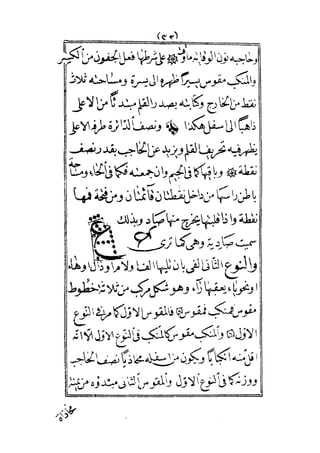 (٤٣)
وحاجبه نون الوقاية ماوفى على شرطها فعل الجفون من الكسر
والمنكب مقوس يسيرا ظهره الى يسرة ومساحته ثلاث
نقط من الخارج وكتابته بصدر القلم مبتدئا من الاعلى
ذاهبا الى اسفل هكذا ونصف الدائرة طرفه الاعلى
يظهر فيه تحريف القلم ويزيد عن الحاجب بقدر نصف
نقطة وباقيها كما فى الجيم وان جمعته فكما فى الحاء ومساحة
باطن راسها من داخل نقطتان قائمتان ومن فتحة فمها
نقطة واذا قلبتها يخرج منها صاد وبذلك
سميت صادية وهى كما ترى
والنوع الثانى لفى بان تليها الف او لام او دال او هاء
او نحو ياء يعقبها راء وهو شكل مركب من ثلاثة خطوط
مقوس فمنكب فمقوس فالمقوس الاول كما مر فى النوع
الاول والمنكب مقوس كالمنكب فى النوع الاول الا انه
اقل منه انكبابا ويكون من اسفله محاذيا نصف الحاجب
ووزنه كما فى النوع الاول والمقوس الثانى مبتدؤه من يمنة
محاذاة